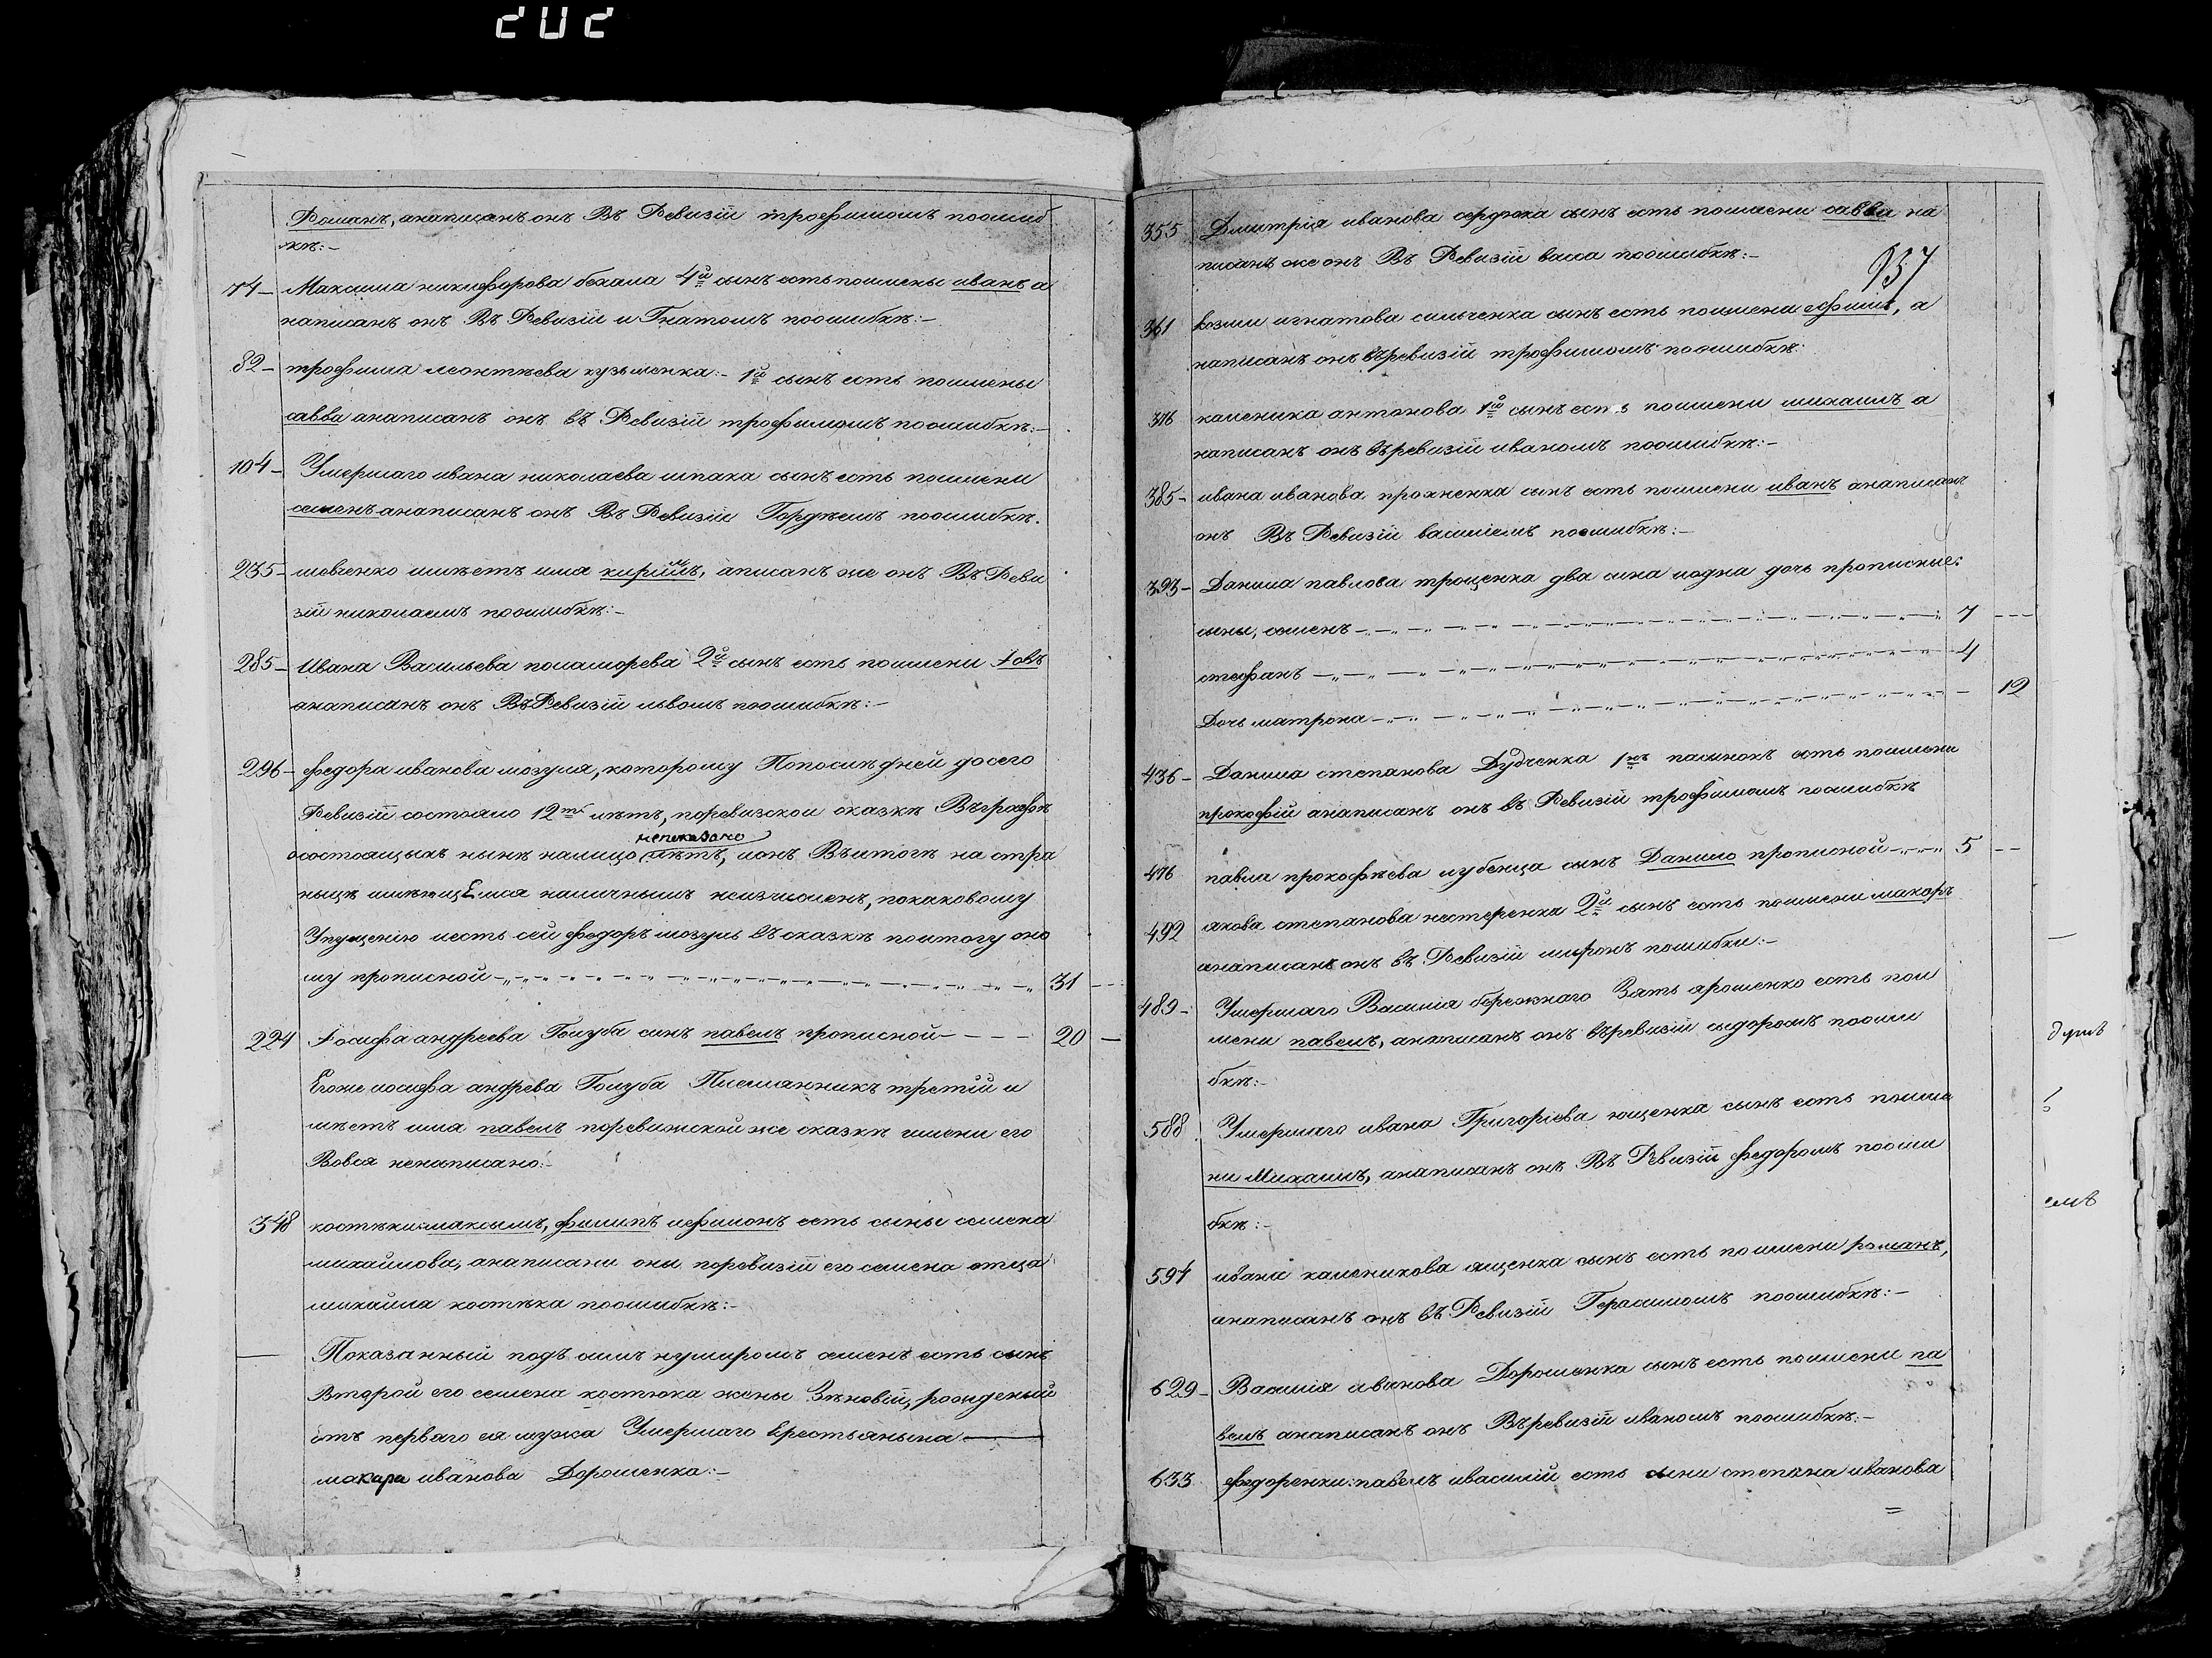 202
Романъ, анаписанъ онъ Въ Ревизіи трофимомъ поошиб
кѣ:-
74- Максима никифорова бехала 4й сынъ есть поимены иванъ а
написанъ онъ Въ Ревизіи и Гнатомъ поошибкѣ:-
82- трофима леонтѣева кузьменка:- 1й сынъ есть поимены
савва анаписанъ онъ въ Ревизіи трофымомъ поошибкѣ:-
104- Умершаго ивана николаева шпака сынъ есть поимени
семенъ анаписанъ онъ Въ Ревизіи Гордѣемъ поошибкѣ.
235- шевченко имѣетъ имя кирилъ, аписанъ же онъ Въ Реви
зіи николаемъ поошибкѣ:-
285- Ивана Васильева поламорева 2й сынъ есть поимени Іовъ
анаписанъ онъ Въ Ревизіи львомъ поошибкѣ:-
296- федора иванова мозуля, которому Попослѣдней досего
Ревизіи состояло 12ть лѣтъ, поревизской сказкѣ Въграфѣ
непоказано
осостоящыхъ нынѣ налицо лѣтъ, ионъ Въитогѣ на стра
ныцѣ имѣющЕмся наличнымъ неизчисленъ, покаковому
Упущенію иесть сей федоръ мозуль въ сказкѣ поитогу оно
му прописной 31
224 Іосифа андреева Голуба синъ павелъ прописной 20
Егоже иосифа андрева Голуба Племянникъ третій и
мѣетъ имя павелъ поревижской же сказкѣ имени его
Вовся ненаписано:-
348 костѣки: максымъ, филипъ ифилонъ есть сынье семена
михайлова, анаписани оны поревизіи его семена отца
михайла костѣка поошибкѣ:-
Показанный подъ симъ нумиромъ семенъ есть сынъ
Второй его семена костюка жены Зѣновіи, рожденый
отъ перваго ея мужа Умершаго крестьянына
макара иванова Дорошенка:-
937
355 Дмитрія иванова сердюка сынъ есть поимени савва на
писанъ же онъ Въ Ревизіи васса поошибкѣ:-
361 козми игнатова сильченка сынъ есть поимени ефимъ, а
написанъ онъ въревизіи трофимомъ поошибкѣ:
376 каленика антонова 1й сынъ есть поимени михаилъ а
написанъ онъ въревизіи иваномъ поошибкѣ:-
385- ивана иванова прохненка сынъ есть поимени иванъ анаписанъ
онъ Въ Ревизіи василіемъ поошибкѣ:-
393- Данила павлова троценка два сина иодна дочь прописные:
сыны, семенъ 7
стефанъ 4
Дочь матрона 12
436- Данила степанова Дудченка 1й пасынокъ есть поимени
прокофій анаписанъ онъ въ Ревизіи трофимомъ поошибкѣ
476 павла прокофѣева лубенца сынъ Данило прописной 5
492 якова степанова нестеренка 2й сынъ есть поимени макаръ
анаписанъ онъ въ Ревизіи миронъ пошибки:-
489- Умершаго Василія бережнаго Зять ярошенко есть пои
мени павелъ, анаписанъ онъ въревизіи сыдоромъ пооши
бкѣ:-
588. Умершаго ивана Григоріева ющенка сынъ есть поиме
ни Михаилъ, анаписанъ онъ Въ Ревизіи федоромъ пооши
бкѣ:-
594 ивана каленикова ященка сынъ есть поимени романъ,
анаписанъ онъ въ Ревизіи Герасимомъ поошибкѣ:-
629- Василія иванова Дорошенка сынъ есть поимени па
велъ анаписанъ онъ Въревизіи иваномъ поошибкѣ:-
633 федоренки: павелъ ивасилій есть сыни степана иванова